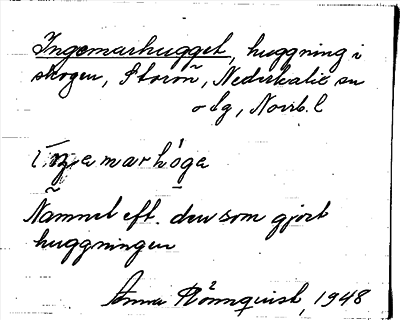 Ingemarhugget, huggning i
skogen, Storön, Nederkalix sn
o lg, Norrb. l
iŋemarhóge
Namnet eft. den som gjort
huggningen
Anna Rönnquist, 1948